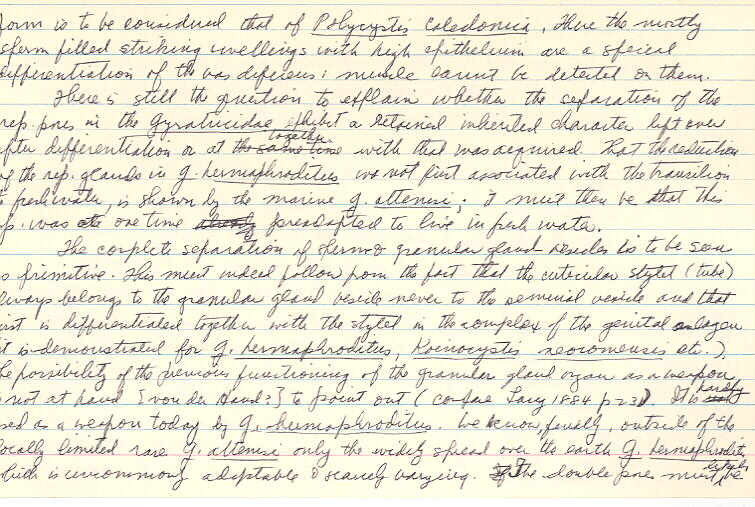 form is to be considered that of Polycystis caledonica, There the mostly
sperm filled striking swellings with high epithelium are a special
differentiation of the vas deferens; muscle cannot be detected on them.
There is still the question to explain whether the separation of the
rep. pores in the Gyratricidae exhibit a retained inherited character left over
together
after differentiation or at the same time with that was acquired. That the reduction
of the rep. glands in G. hermaphroditus was not first associated with the transition
to fresh water, is shown by the marine G. attemsi; it must then be that this
sp. was at one time already preadapted to live in fresh water.
The complete separation of sperm & granular gland vesicles is to be seen
as primitive. This must indeed follow from the fact that the cuticular stylet (tube)
always belongs to the granular gland vesicle never to the seminal vesicle and that
first is differentiated together with the stylet in the complex of the genital anlagen
it is demonstrated for G. hermaphroditus, Koinocystis neocomensis etc.).
The possibility of the previous functioning of the granular gland organ as a weapon,
is not at hand [von der Hand?] to point out (compare Lang 1884 p 231). It is hardly
used as a weapon today by G. hermaphroditus. We know, finally, outside of the
locally limited rare G. attemsi only the widely spread over the earth G. hermaphroditus
which is uncommonly adaptable & scarcely varying. The double pores must be